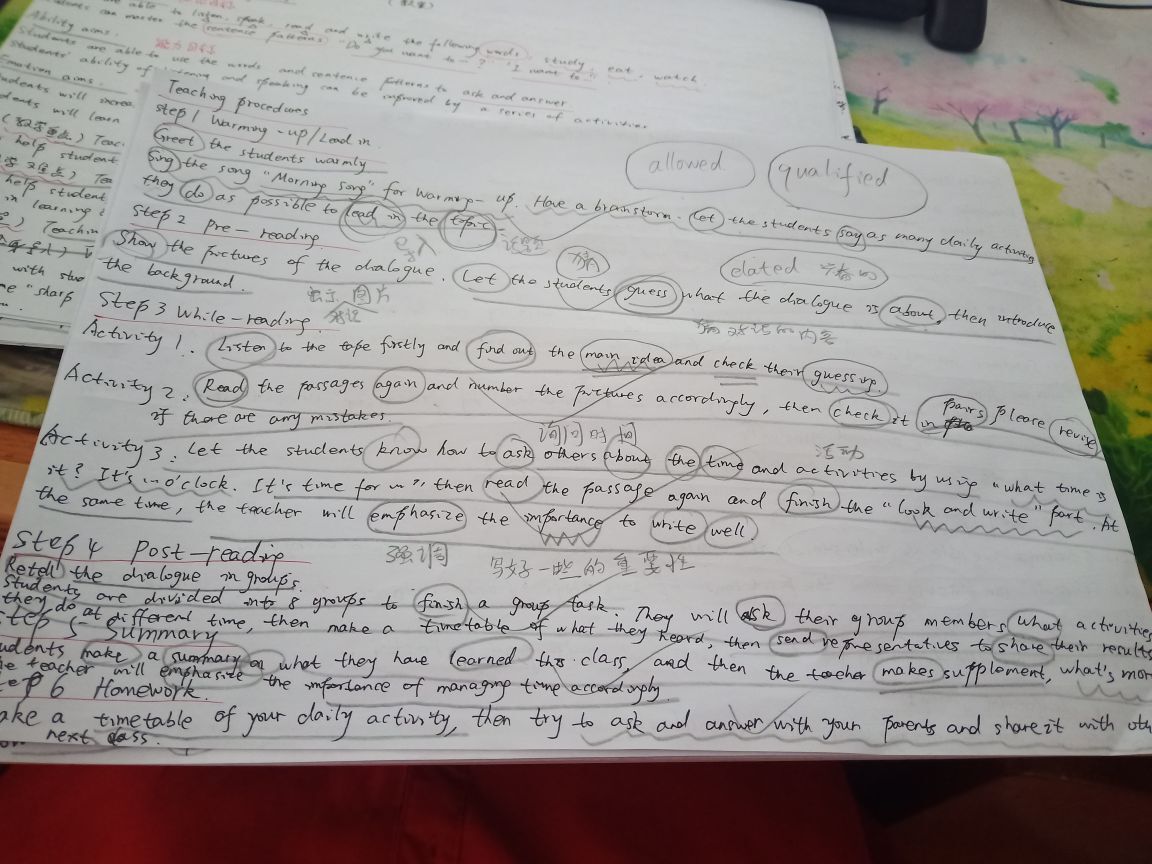 able to listen, speak, read and write the following words study, eat, watch
can master the sentence patterns "Do you want to — ?" "I want to —"
Ability aims. 能力目标
Students are able to use the words and sentence patterns to ask and answer
students' ability of and speaking can be improved by a series of activities
Emotion aims.
students will
will learn
(教学重点)
help student
help student
in learning
with stud
"sharp
Teaching procedures
Step 1 Warming-up/Lead in.
Greet the students warmly
allowed
qualified
Sing the song "Morning song" for warming-up. Have a brainstorm. Let the students say as many daily activities
they do as possible to lead in the topic.
导入
话题
Step 2 Pre-reading
猜
elated 兴奋的
Show the pictures of the dialogue. Let the students guess what the dialogue is about, then introduce
the background.
出示 图片
对话
猜对话的内容
Step 3 While-reading.
Activity 1. Listen to the tape firstly and find out the main idea and check their guessing.
Activity 2. Read the passages again and number the pictures accordingly, then check it in pairs, please revise
if there are any mistakes.
询问时间
活动
Activity 3. Let the students know how to ask others about the time and activities by using "what time is
it? It's ... o'clock. It's time for ...", then read the passage again and finish the "Look and write" part. At
the same time, the teacher will emphasize the importance to write well.
强调
写好一些的重要性
Step 4 Post-reading
Retell the dialogue in groups.
Students are divided into 8 groups to finish a group task. They will ask their group members what activities
they do at different time, then make a timetable of what they heard, then send representatives to share their results
Step 5 Summary
udents make a summary on what they have learned this class, and then the teacher makes supplement, what's mor
he teacher will emphasize the importance of managing time accordingly.
ep 6 Homework.
ake a timetable of your daily activity, then try to ask and answer with your parents and share it with oth
next class.